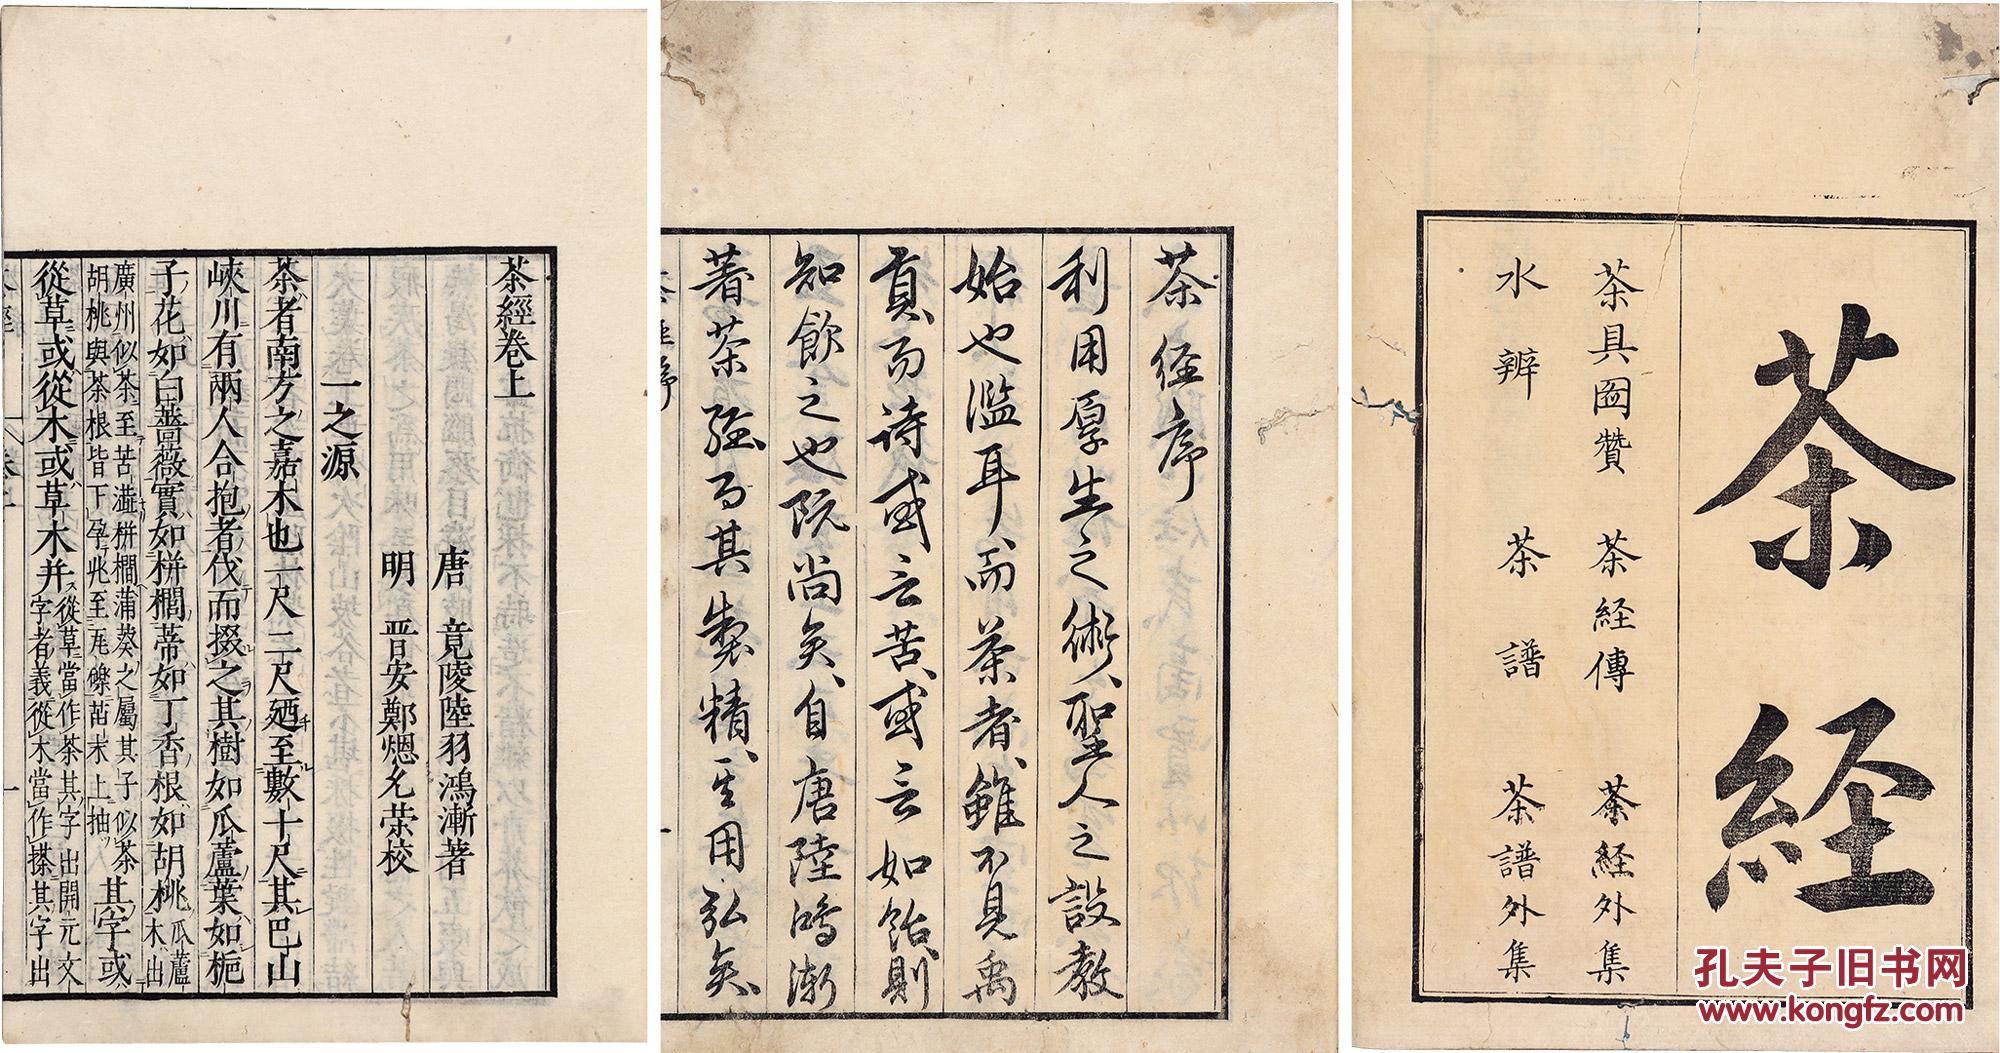 茶経
茶具図賛 茶経傳 茶経外集
水辨 茶譜 茶譜外集
茶経序
利用厚生之術、聖人之設教
始也濫耳、而茶者、雖不見禹
貢、而詩或云苦、或云如飴、則
知飲之也阮尚矣、自唐陸鴻漸
著茶經而其製精、其用弘矣、
茶經卷上
唐 竟陵陸羽鴻漸著
明 晉安鄭熜允榮校
一之源
茶者南方之嘉木也一尺二尺廼至數十尺其巴山
峽川有兩人合抱者伐而掇之其樹如瓜蘆葉如梔
子花如白薔薇實如栟櫚蒂如丁香根如胡桃瓜蘆木出
廣州似茶至苦澁栟櫚蒲葵之屬其子似茶胡桃與茶根皆下孕兆至瓦礫苗木上抽其字或
從草或從木或草木并從草當作茶其字出開元文字者義從木當作搽其字出
孔夫子旧书网
www.kongfz.com